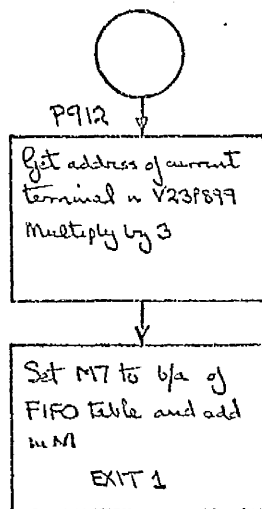 P912
Get address of current
terminal in V23P899
Multiply by 3
Set M7 to b/a of
FIFO table and add
in M
EXIT 1